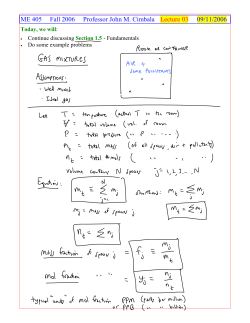 ME 405 Fall 2006 Professor John M. Cimbala Lecture 03 09/11/2006
Today, we will:
• Continue discussing Section 1.5 - Fundamentals
• Do some example problems
Room or container
GAS MIXTURES
AIR +
some pollutants
Assumptions:
• Well mixed
• Ideal gas
Let T = temperature (actual T in the room)
V = total volume (vol. of room
P = total pressure (P
m_t = total mass (of all species, air + pollutants)
n_t = total #mols (
volume contains N species j = 1, 2, 3, ... N
Equations: m_t ≡ Σ_{j=1}^{N} m_j
shorthand: m_t = Σ m_j
m_j = mass of species j
m_t = Σ m_j
n_t = Σ n_j
mass fraction of species j = f_j = m_j / m_t
mol fraction " " = y_j = n_j / n_t
typical "units" of mol fraction is PPM (parts per million)
or PPB ( billion)